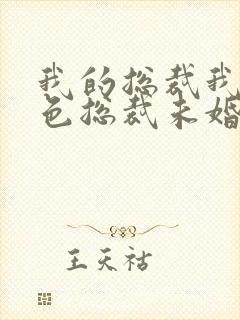 我的总裁我
色总裁未婚
王天祜